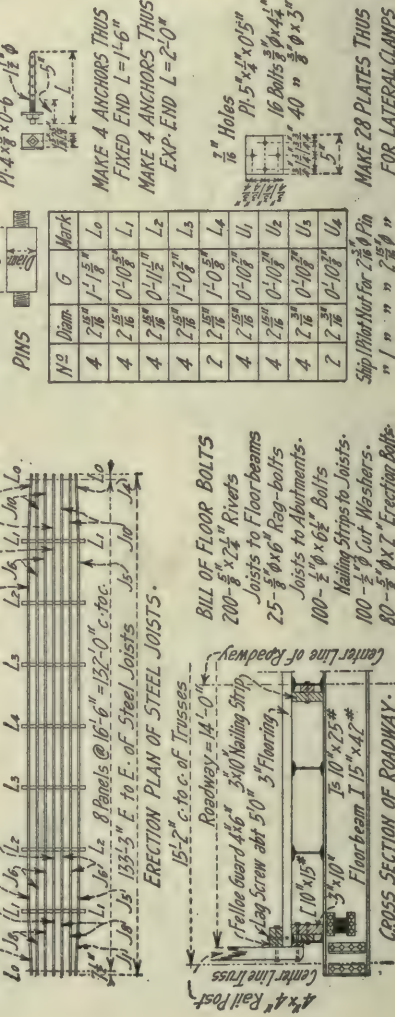 L0 J10 L1 L2 L3 L4 L3 L2 L1 L0
J6 J5 J10
L0 J8 L1 J6 L2
J1 J8 L1 J6 J5 L2
8 Panels @ 16'-6" = 132'-0" c. to c.
133'-3" E. to E. of Steel Joists
ERECTION PLAN OF STEEL JOISTS.
15'-2" c. to c. of Trusses
Roadway = 14'-0"
Felloe Guard 4"x6" 3"x10" Nailing Strip
Lag Screw abt 5'0" 3" Flooring
4"x4" Rail Post
Center Line Truss
[ 10"x15#
3"x10" Is 10"x25#
Floorbeam I 15"x42#
Center Line of Roadway
CROSS SECTION OF ROADWAY.
BILL OF FLOOR BOLTS
200-5/8"x2 1/4" Rivets
Joists to Floorbeams
25-5/8"ϕx6" Rag-bolts
Joists to Abutments.
100-1/2"ϕx6 1/2" Bolts
Nailing Strips to Joists.
100-1/2"ϕ Cut Washers.
80-3/4"ϕx2" Erecting Bolts.
PINS
Diam.
Nº Diam. G Mark
4 2 15/16 1'-1 5/8" L0
4 2 15/16 0'-10 5/8" L1
4 2 15/16 0'-11 1/2" L2
4 2 15/16 1'-0 7/8" L3
2 2 15/16 1'-0 5/8" L4
4 2 15/16 0'-10 7/8" U1
4 2 15/16 0'-10 7/8" U2
4 2 3/16 0'-10 7/8" U3
2 2 3/16 0'-10 7/8" U4
Ship 1 Pilot Nut For 2 3/16"ϕ Pin
" 1 " " " 2 15/16"ϕ "
Pl. 4"x 3/8"x0'-6" 1 1/2"ϕ
5"
L
MAKE 4 ANCHORS THUS
FIXED END L=1'-6"
MAKE 4 ANCHORS THUS
EXP. END L=2'-0"
7/16" Holes
Pl. 5"x 1/4"x0'5"
16 Bolts 3/8"ϕx4 1/4"
40 " 3/8"ϕx3"
5"
MAKE 28 PLATES THUS
FOR LATERAL CLAMPS